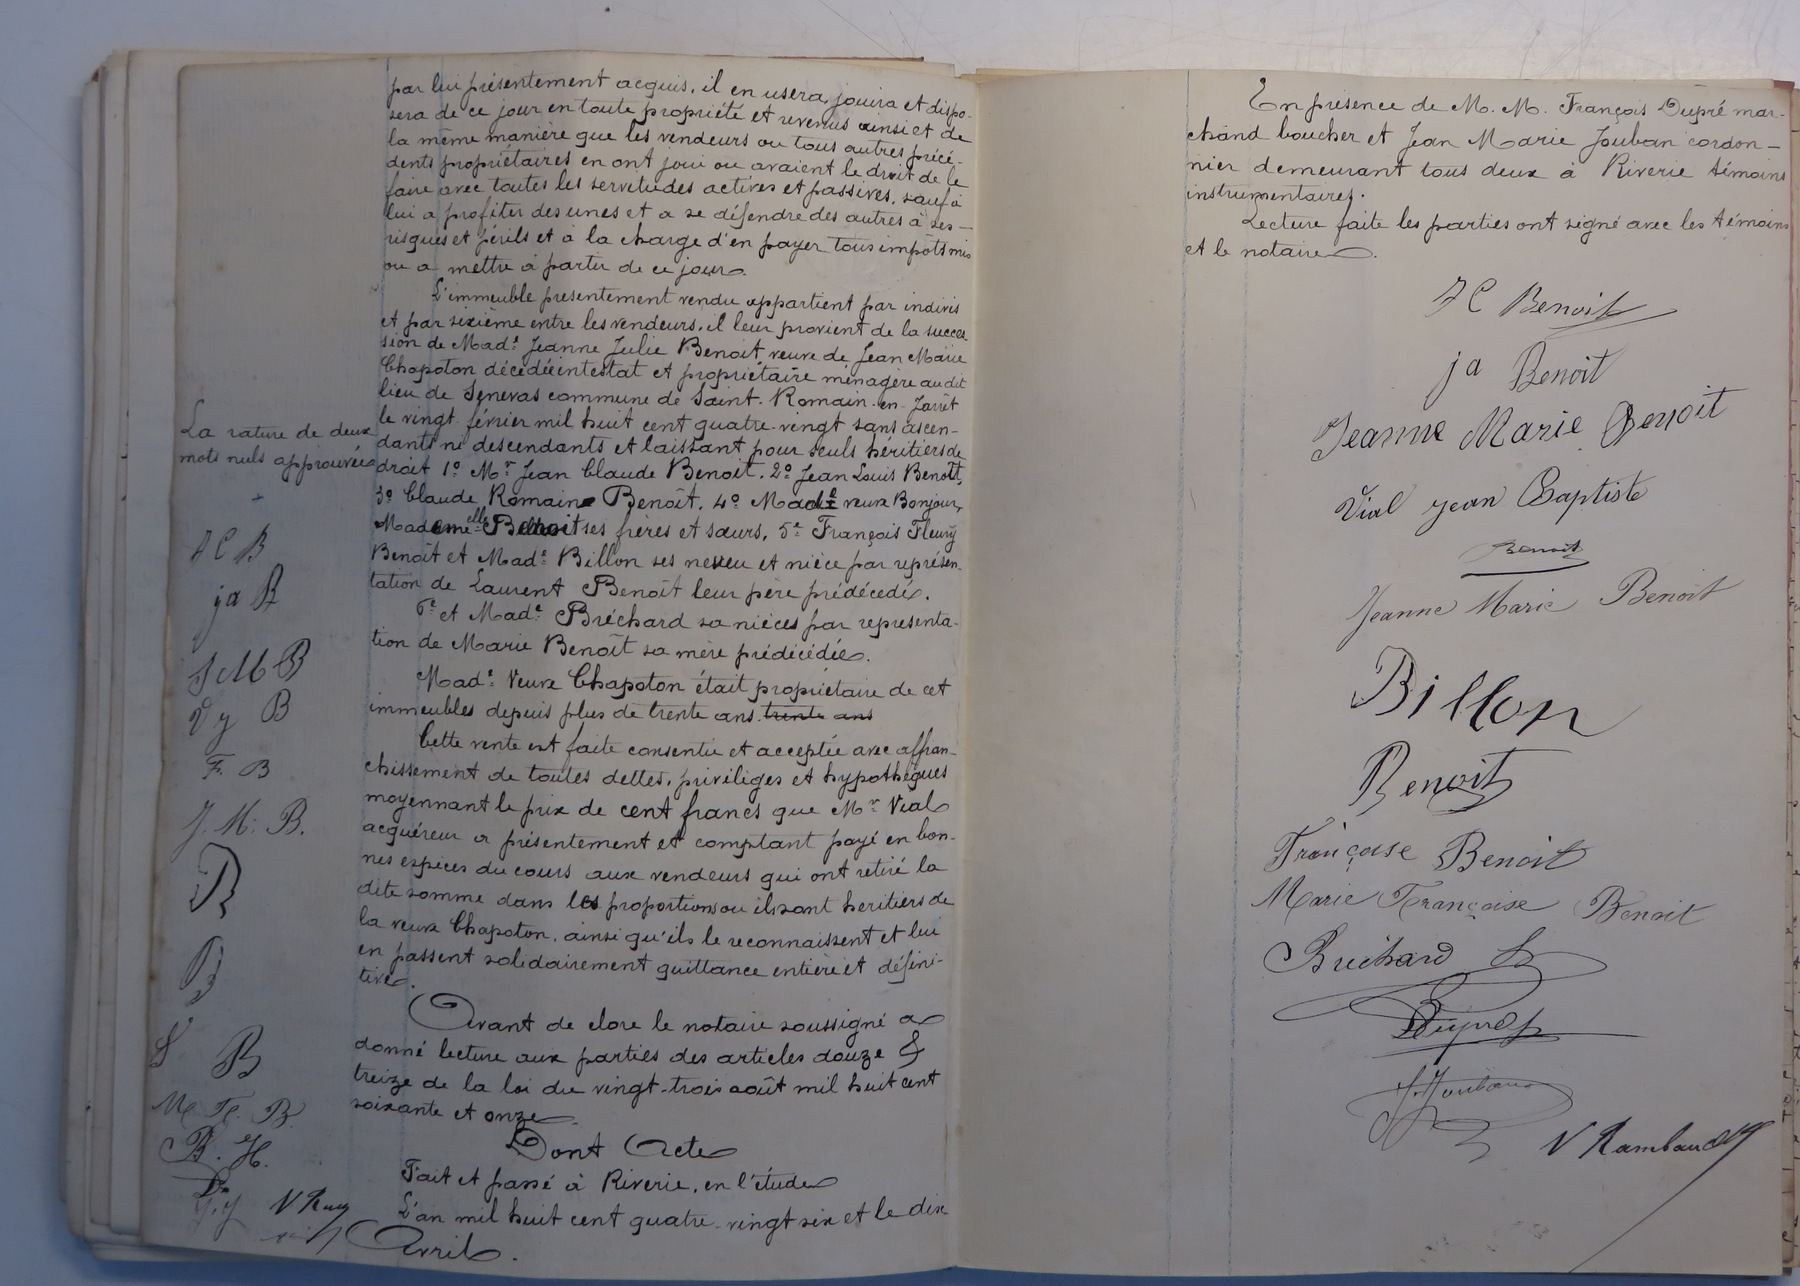 par lui présentement acquis. il en usera, jouira et dispo-
sera de ce jour en toute propriété et revenus ainsi et de
la même manière que les vendeurs ou tous autres précé-
dents propriétaires en ont joui ou avaient le droit de le
faire avec toutes les servitudes actives et passives, sauf à
lui a profiter des unes et a se défendre des autres à ses
risques et périls et à la charge d'en payer tous impôts mis
ou a mettre à partir de ce jour.
L'immeuble présentement vendu appartient par indivis
et par sixième entre les vendeurs. il leur provient de la succes
sion de Made Jeanne Julie Benoit veuve de Jean Marie
Chapoton décédée intestat et propriétaire ménagère au dit
lieu de Senevas commune de Saint-Romain-en-Jarrêt
le vingt février mil huit cent quatre-vingt sans ascen-
dants ni descendants et laissant pour seuls héritiers de
droit 1º Mr Jean Claude Benoit. 2º Jean Louis Benoît,
3º Claude Romain Benoît. 4º Made veuve Bonjour,
Mademelle Benoit ses frères et sœurs, 5e François Fleury
Benoît et Made Billon ses neveu et nièce par représen-
tation de Laurent Benoît leur père prédécédé.
6e et Made Bréchard sa nièces par representa-
tion de Marie Benoît sa mère prédécédée.
Made Veuve Chapoton était propriétaire de cet
immeubles depuis plus de trente ans trente ans
Cette vente est faite consentie et acceptée avec affran-
chissement de toutes dettes, priviliges et hypothèques
moyennant le prix de cent francs que Mr Vial
acquéreur a présentement et comptant payé en bon-
nes espèces du cours aux vendeurs qui ont retiré la
dite somme dans les proportions ou ils sont heritiers de
la veuve Chapoton, ainsi qu'ils le reconnaissent et lui
en passent solidairement quittance entière et défini-
tive.
Avant de clore le notaire soussigné a
donné lecture aux parties des articles douze &
treize de la loi du vingt-trois août mil huit cent
soixante et onze
Dont Acte
Fait et passé à Riverie, en l'étude
L'an mil huit cent quatre-vingt six et le dix
Avril.
La rature de deux
mots nuls approuvée
J C B
ja B
J M B
V j B
F. B
J. M. B.
B
B
F B
M F. B
B. H.
D
J. J N Ram
En présence de M. M. François Dupré mar-
chand boucher et Jean Marie Jouban cordon-
nier demeurant tous deux à Riverie témoins
instrumentaires.
Lecture faite les parties ont signé avec les témoins
et le notaire.
J C Benoit
ja Benoit
Jeanne Marie Benoit
Vial jean Baptiste
Benoit
Jeanne Marie Benoit
Billon
Benoit
Françoise Benoit
Marie Françoise Benoit
Brechard
Dupré
J. Jouban
N Rambaud